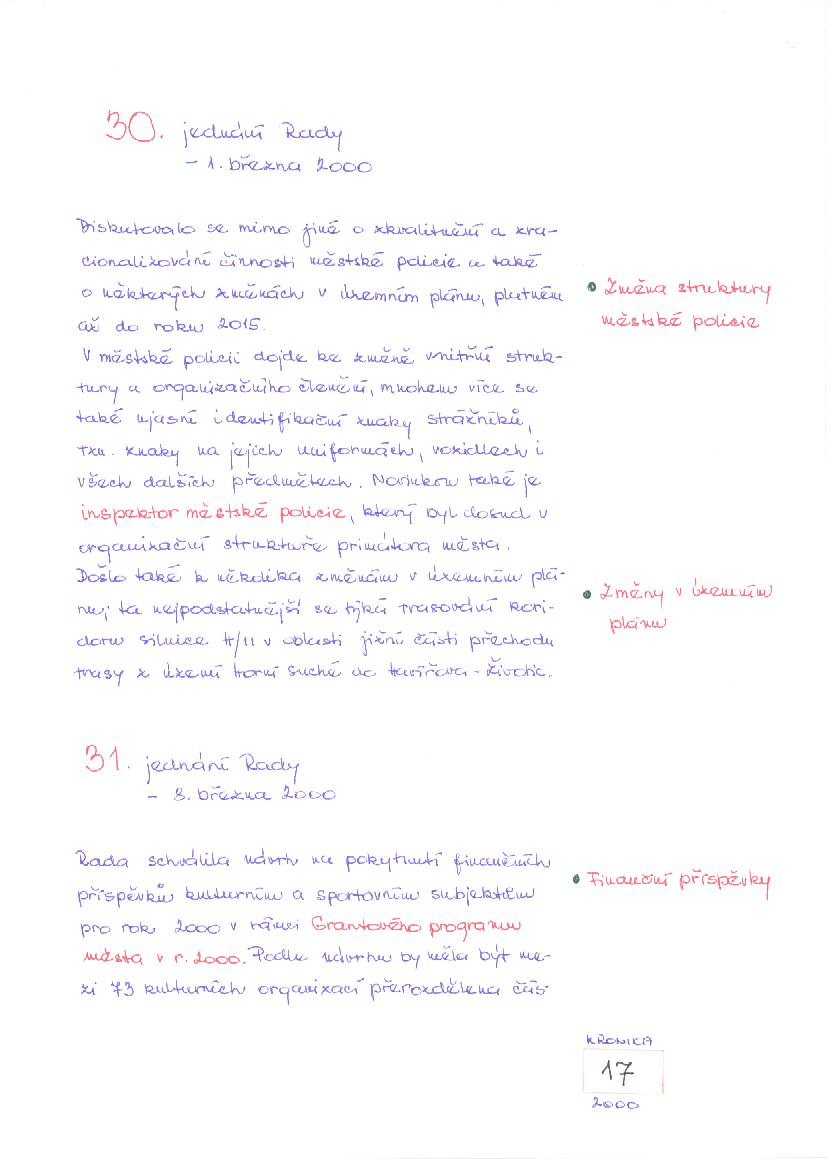 30. jednání Rady
– 1. března 2000
Diskutovalo se mimo jiné o zkvalitnění a zra-
cionalizování činnosti městské policie a také
o některých změnách v územním plánu, platném
až do roku 2015.
• Změna struktury
městské policie
V městské policii dojde ke změně vnitřní struk-
tury a organizačního členění, mnohem více se
také ujasní identifikační znaky strážníků,
tzn. znaky na jejich uniformách, vozidlech i
všech dalších předmětech. Novinkou také je
inspektor městské policie, který byl dosud v
organizační struktuře primátora města.
Došlo také k několika změnám v územním plá-
nu; ta nejpodstatnější se týká trasování kori-
doru silnice II/11 v oblasti jižní části přechodu
trasy z území Horní Suché do Havířova - Životic.
• Změny v územním
plánu
31. jednání Rady
– 8. března 2000
Rada schválila návrh na pokytnutí finančních
příspěvků kulturním a sportovním subjektům
pro rok 2000 v rámci Grantového programu
města v r. 2000. Podle návrhu by měla být me-
zi 73 kulturních organizací přerozdělena čás-
• Finanční příspěvky
KRONIKA
17
2000